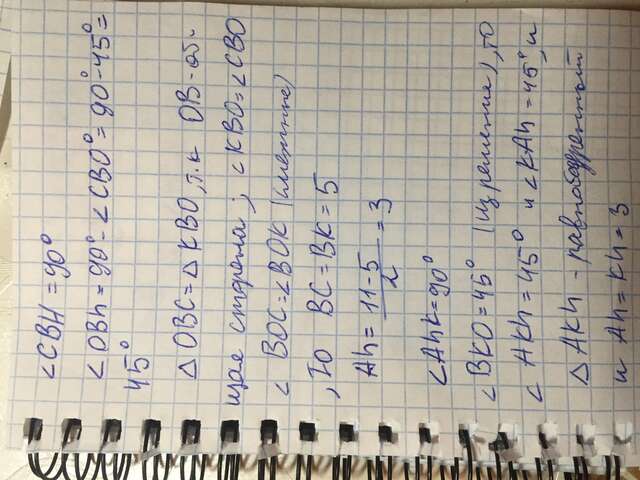 ∠CBH = 90°
∠OBh = 90° - ∠CBO° = 90° - 45° =
45°
△ OBC = △ KBO, т.к OB - об-
щая сторона; ∠KBO = ∠CBO
∠ BOC = ∠BOK (смежные)
, то BC = BK = 5
Ah = 11-5/2 = 3
∠AhK = 90°
∠BKO = 45° (из решения), то
∠ AKh = 45° и ∠KAh = 45°, и
△ AKh - равнобедренный
и Ah = Kh = 3